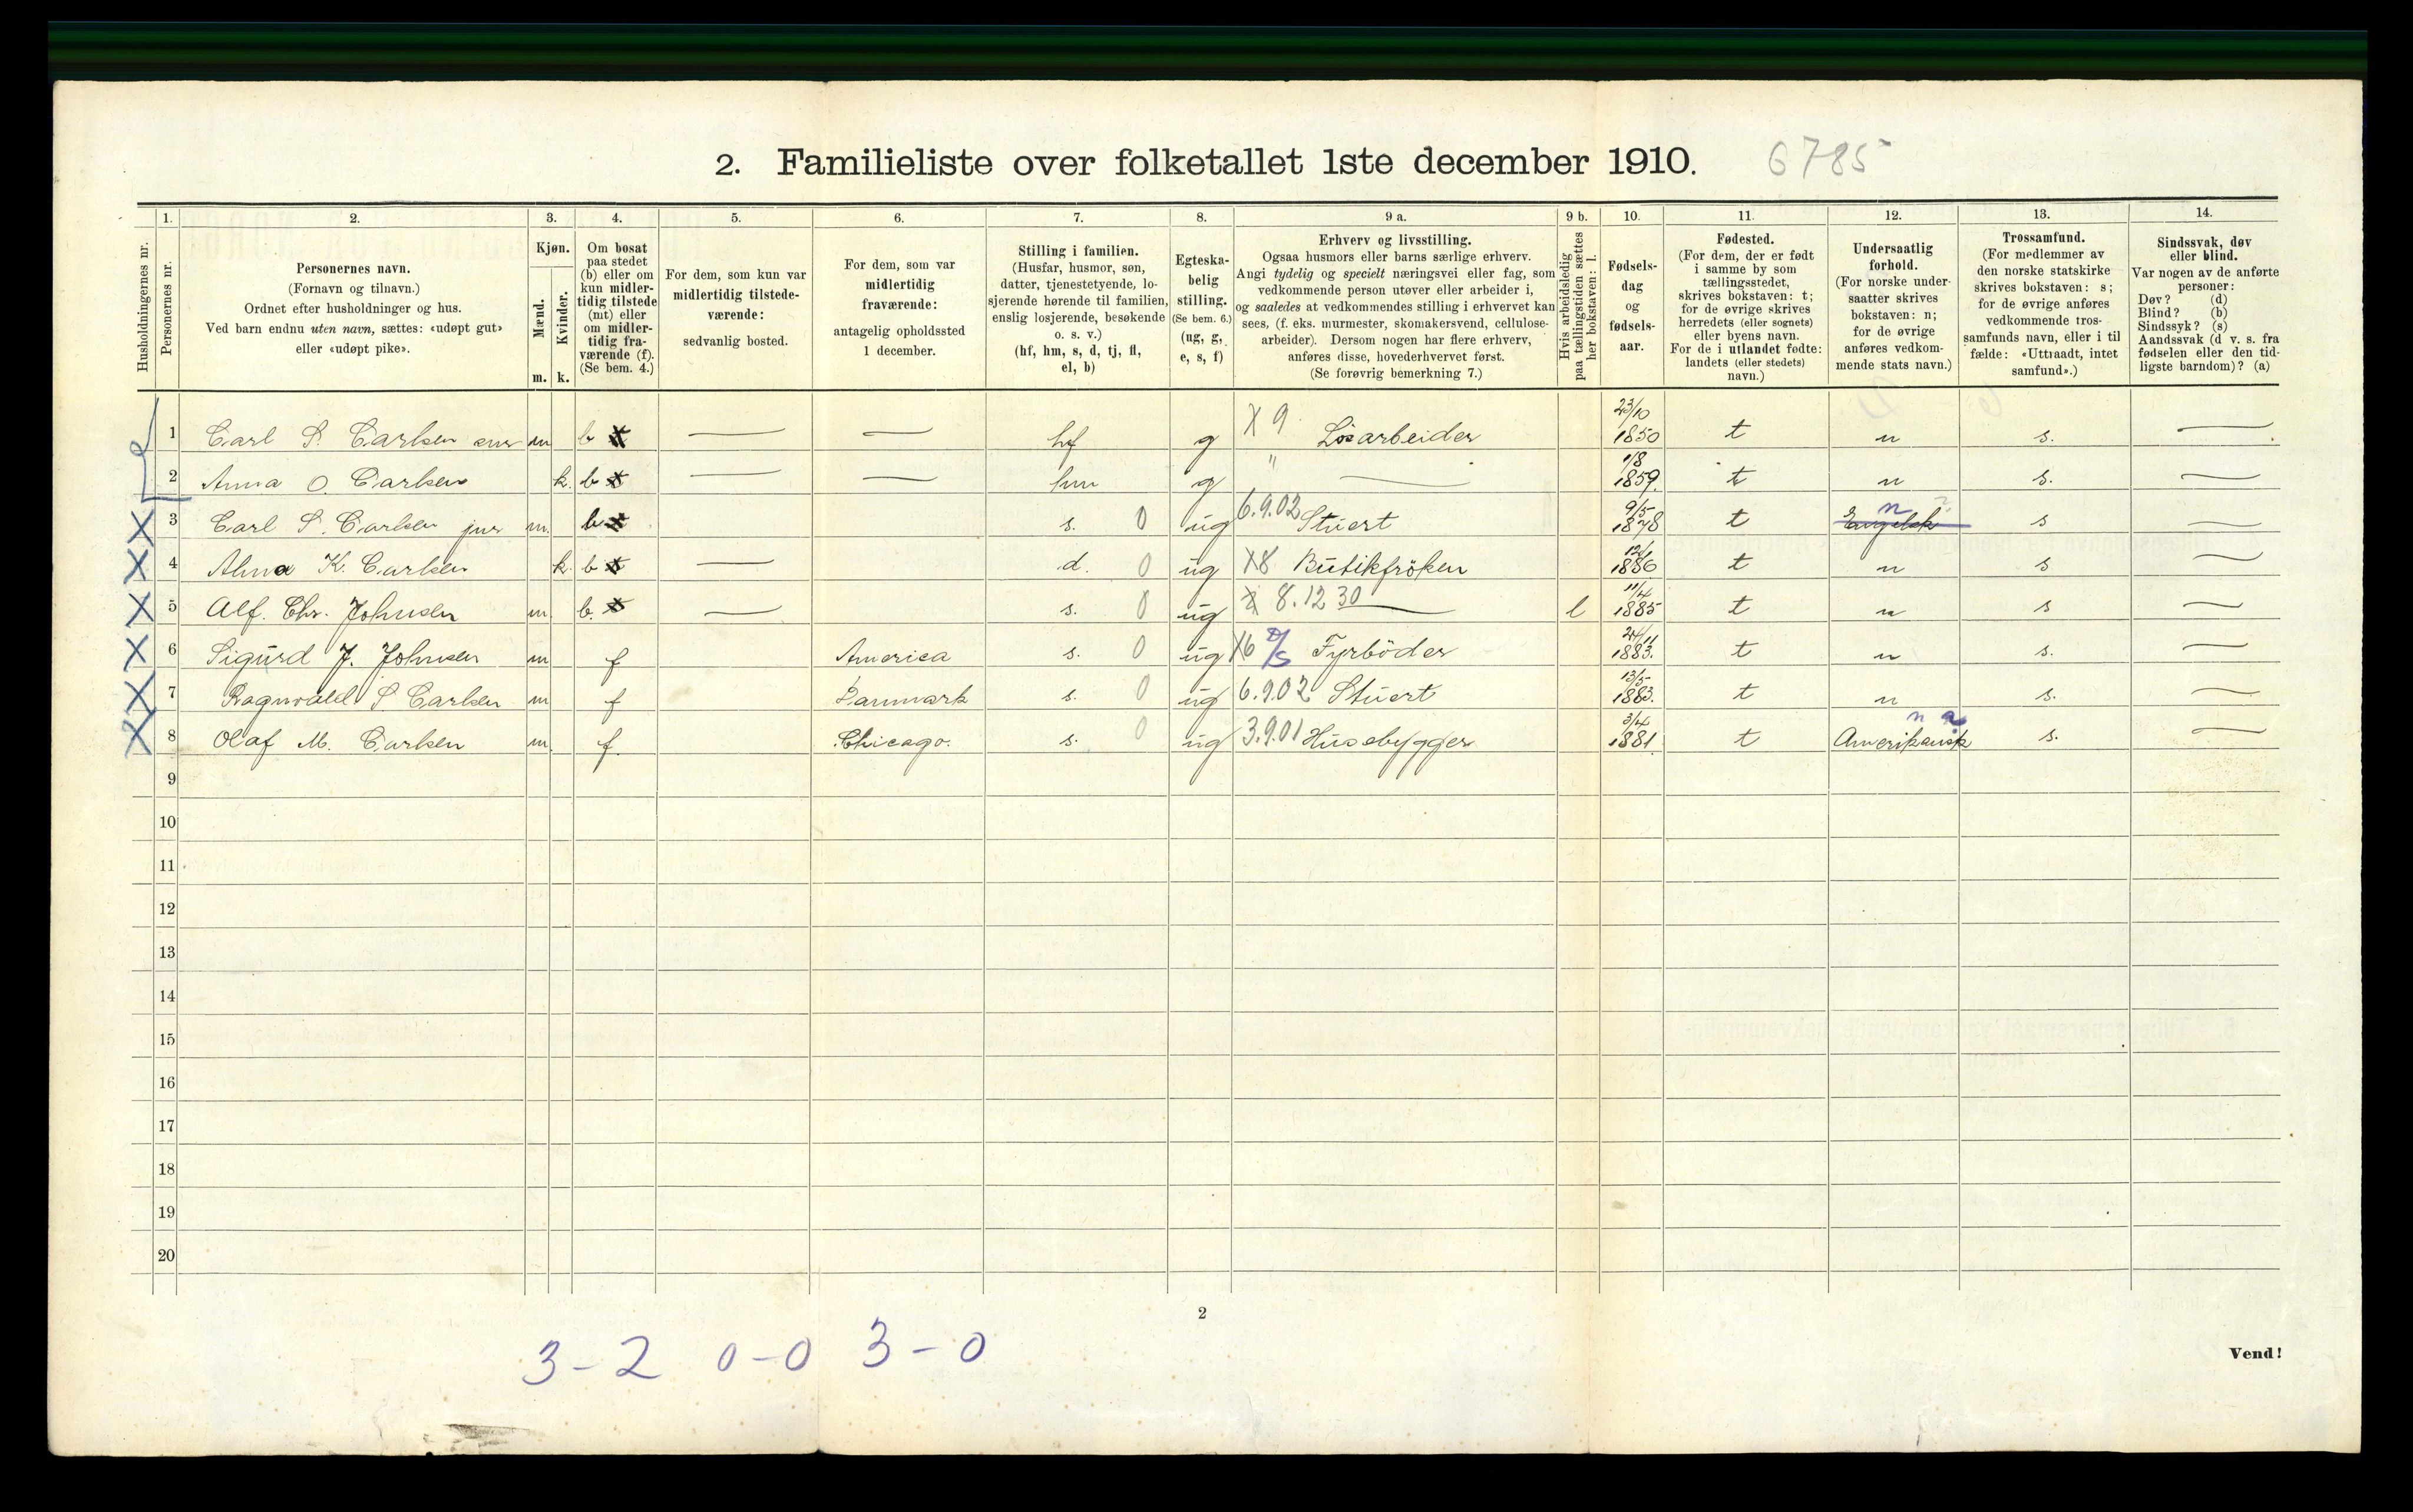 2. Familieliste over folketallet 1ste december 1910. 6785
1. 2. 3. 4. 5. 6. 7. 8. 9 a. 9 b. 10. 11. 12. 13. 14.
Husholdningernes nr.
Personernes nr.
Personernes navn.
(Fornavn og tilnavn.)
Ordnet efter husholdninger og hus.
Ved barn endnu uten navn, sættes: «udøpt gut»
eller «udøpt pike».
Kjøn.
Mænd.
Kvinder.
m. k.
Om bosat
paa stedet
(b) eller om
kun midler-
tidig tilstede
(mt) eller
om midler-
tidig fra-
værende (f).
(Se bem. 4.)
For dem, som kun var
midlertidig tilstede-
værende:
sedvanlig bosted.
For dem, som var
midlertidig
fraværende:
antagelig opholdssted
1 december.
Stilling i familien.
(Husfar, husmor, søn,
datter, tjenestetyende, lo-
sjerende hørende til familien,
enslig losjerende, besøkende
o. s. v.)
(hf, hm, s, d, tj, fl,
el, b)
Egteska-
belig
stilling.
(Se bem. 6.)
(ug, g,
e, s, f)
Erhverv og livsstilling.
Ogsaa husmors eller barns særlige erhverv.
Angi tydelig og specielt næringsvei eller fag, som
vedkommende person utøver eller arbeider i,
og saaledes at vedkommendes stilling i erhvervet kan
sees, (f. eks. murmester, skomakersvend, cellulose-
arbeider). Dersom nogen har flere erhverv,
anføres disse, hovederhvervet først.
(Se forøvrig bemerkning 7.)
Hvis arbeidsledig
paa tællingstiden sættes
her bokstaven: l.
Fødsels-
dag
og
fødsels-
aar.
Fødested.
(For dem, der er født
i samme by som
tællingsstedet,
skrives bokstaven: t;
for de øvrige skrives
herredets (eller sognets)
eller byens navn.
For de i utlandet fødte:
landets (eller stedets)
navn.)
Undersaatlig
forhold.
(For norske under-
saatter skrives
bokstaven: n;
for de øvrige
anføres vedkom-
mende stats navn.)
Trossamfund.
(For medlemmer av
den norske statskirke
skrives bokstaven: s;
for de øvrige anføres
vedkommende tros-
samfunds navn, eller i til
fælde: «Uttraadt, intet
samfund».)
Sindssvak, døv
eller blind.
Var nogen av de anførte
personer:
Døv? (d)
Blind? (b)
Sindssyk? (s)
Aandssvak (d v. s. fra
fødselen eller den tid-
ligste barndom)? (a)
1 Carl S. Carlsen snr m b hf g X 9 Løsarbeider 23/10 1850 t n s.
2 Anna O. Carlsen k. b hm g " 1/8 1859. t n s.
3 Carl S. Carlsen jnr m. b s. 0 ug 6.9.02 Stuert 9/5 1878 t Engelsk n s
4 Alma K. Carlsen k. b d. 0 ug X8 Butikfröken 1886 t n s
5 Alf. Chr. Johnsen m b. s. 0 ug 8.12 30 l 11/4 1885 t n s
6 Sigurd J. Johnsen m f America s. 0 ug X6 D/S Fyrböder 24/11 1883. t n s.
7 Ragnvald S Carlsen m f Danmark s. 0 ug 6.9.02 Stuert 13/5 1883. t n s.
8 Olaf M. Carlsen m f. Chicago. s. 0 ug 3.9.01 Husebygger 3/4 1881. t Amerikansk n s.
9
10
11
12
13
14
15
16
17
18
19
20
2
3-2 0-0 3-0
Vend!